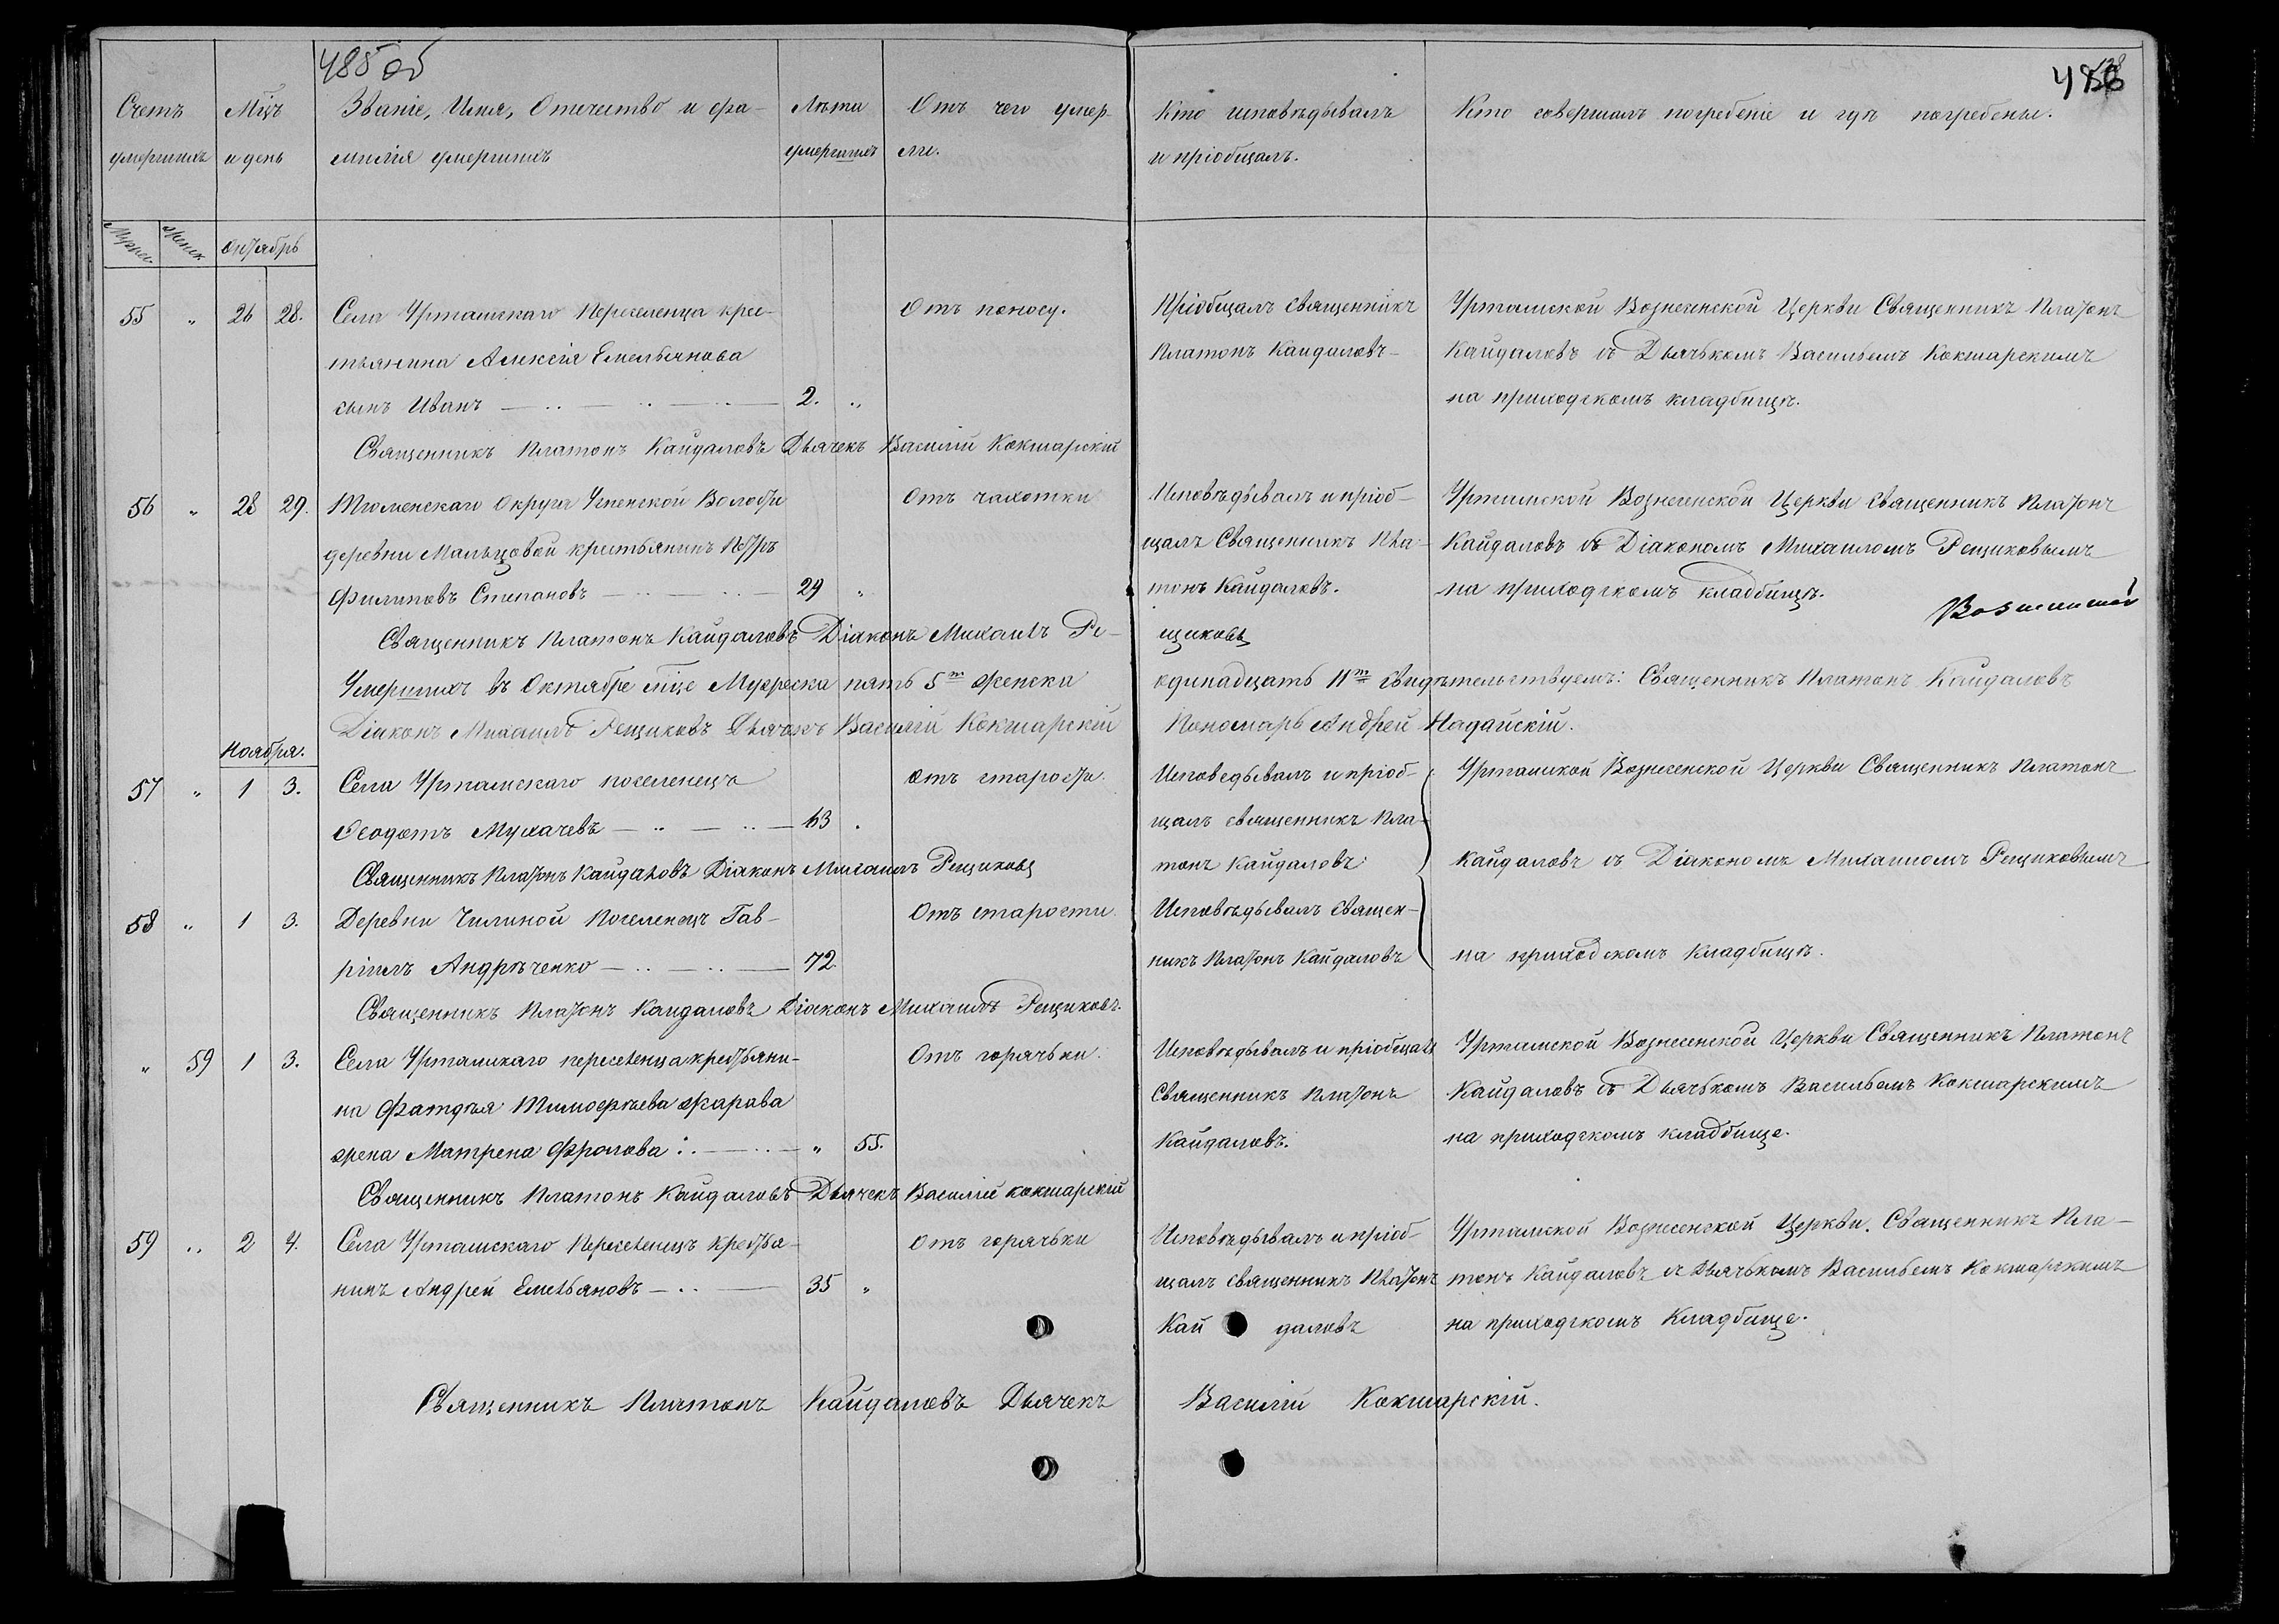 485 об
486
Счетъ умершихъ
Мц̃ъ и день
Званіе, Имя, Отчество и фа-
милія умершихъ
Лѣта умершихъ
Отъ чего умер-
ли.
Кто исповѣдывалъ
и пріобщалъ.
Кто совершалъ погребеніе и гдѣ погребены.
Мужес. Женск. Октябрь
55 " 26 28. Села Уртамскаго Переселенца крес-
тьянина Алексія Емельянова
сынъ Иванъ 2. "
Отъ поносу.
Пріобщалъ священникъ
Платонъ Кайдаловъ
Уртамской Вознесенской Церкви Священникъ Платонъ
Кайдаловъ съ Дьячькомъ Васильемъ Кокшарскимъ
на приходскомъ кладбищѣ.
Священникъ Платонъ Кайдаловъ Дьячекъ Василій Кокшарскій
56 " 28 29. Тюменскаго Округа Успенской Волости
деревни Мальцовой крестьянинъ Петръ
Филиповъ Степановъ 29 "
Отъ чахотки
Исповѣдывалъ и пріоб-
щалъ Священникъ Пла-
тонъ Кайдаловъ.
Уртамской Вознесенской Церкви Священникъ Платонъ
Кайдаловъ съ Діакономъ Михаиломъ Рещиковымъ
на приходскомъ кладбищѣ.
Священникъ Платонъ Кайдаловъ Діаконъ Михаилъ Ре-
щиковъ
Умершихъ въ Октябре мц̃е Мужеска пять 5ть Женска одинадцать 11ть свидѣтельствуемъ: Священникъ Платонъ Кайдаловъ
Діаконъ Михаилъ Рещиковъ Дьячекъ Василій Кокшарскій Пономарь Андрей Надайскій.
Ноября.
57 " 1 3. Села Уртамскаго поселенецъ
Ѳеодотъ Мухачевъ 63 .
Отъ старости.
Исповедывалъ и пріоб-
щалъ священникъ Пла-
тонъ Кайдаловъ.
Уртамской Вознесенской Церкви Священникъ Платонъ
Кайдаловъ съ Діакономъ Михаиломъ Рещиковымъ
Священникъ Платонъ Кайдаловъ Діаконъ Михаилъ Рещиковъ
58 " 1 3. Деревни Чилиной Поселенецъ Гав-
ріилъ Андрѣченко 72
Отъ старости.
Исповѣдывалъ Священ-
никъ Платонъ Кайдаловъ
на приходскомъ кладбищѣ.
Священникъ Платонъ Кайдаловъ Діаконъ Михаилъ Рещиковъ.
" 59 1 3. Села Уртамскаго переселенца крестьяни-
на Фатдѣя Тимофѣева Жарава
жена Матрена Фролова: " 55.
Отъ горячьки.
Исповѣдывалъ и пріобщалъ
Священникъ Платонъ
Кайдаловъ.
Уртамской Вознесенской Церкви Священникъ Платонъ
Кайдаловъ съ Дьячькомъ Васильемъ Кокшарскимъ
на приходскомъ кладбище.
Священникъ Платонъ Кайдаловъ Дьячекъ Василій Кокшарскій
59 " 2 4. Села Уртамскаго Переселенецъ крестья-
нинъ Андрей Емельяновъ 35 "
Отъ горячьки
Исповѣдывалъ и пріоб-
щалъ священникъ Платонъ
Кайдаловъ
Уртамской Вознесенской Церкви. Священникъ Пла-
тонъ Кайдаловъ съ Дьячькомъ Васильемъ Кокшарскимъ
на приходскомъ Кладбище.
Священникъ Платонъ Кайдаловъ Дьячекъ Василій Кокшарскій.